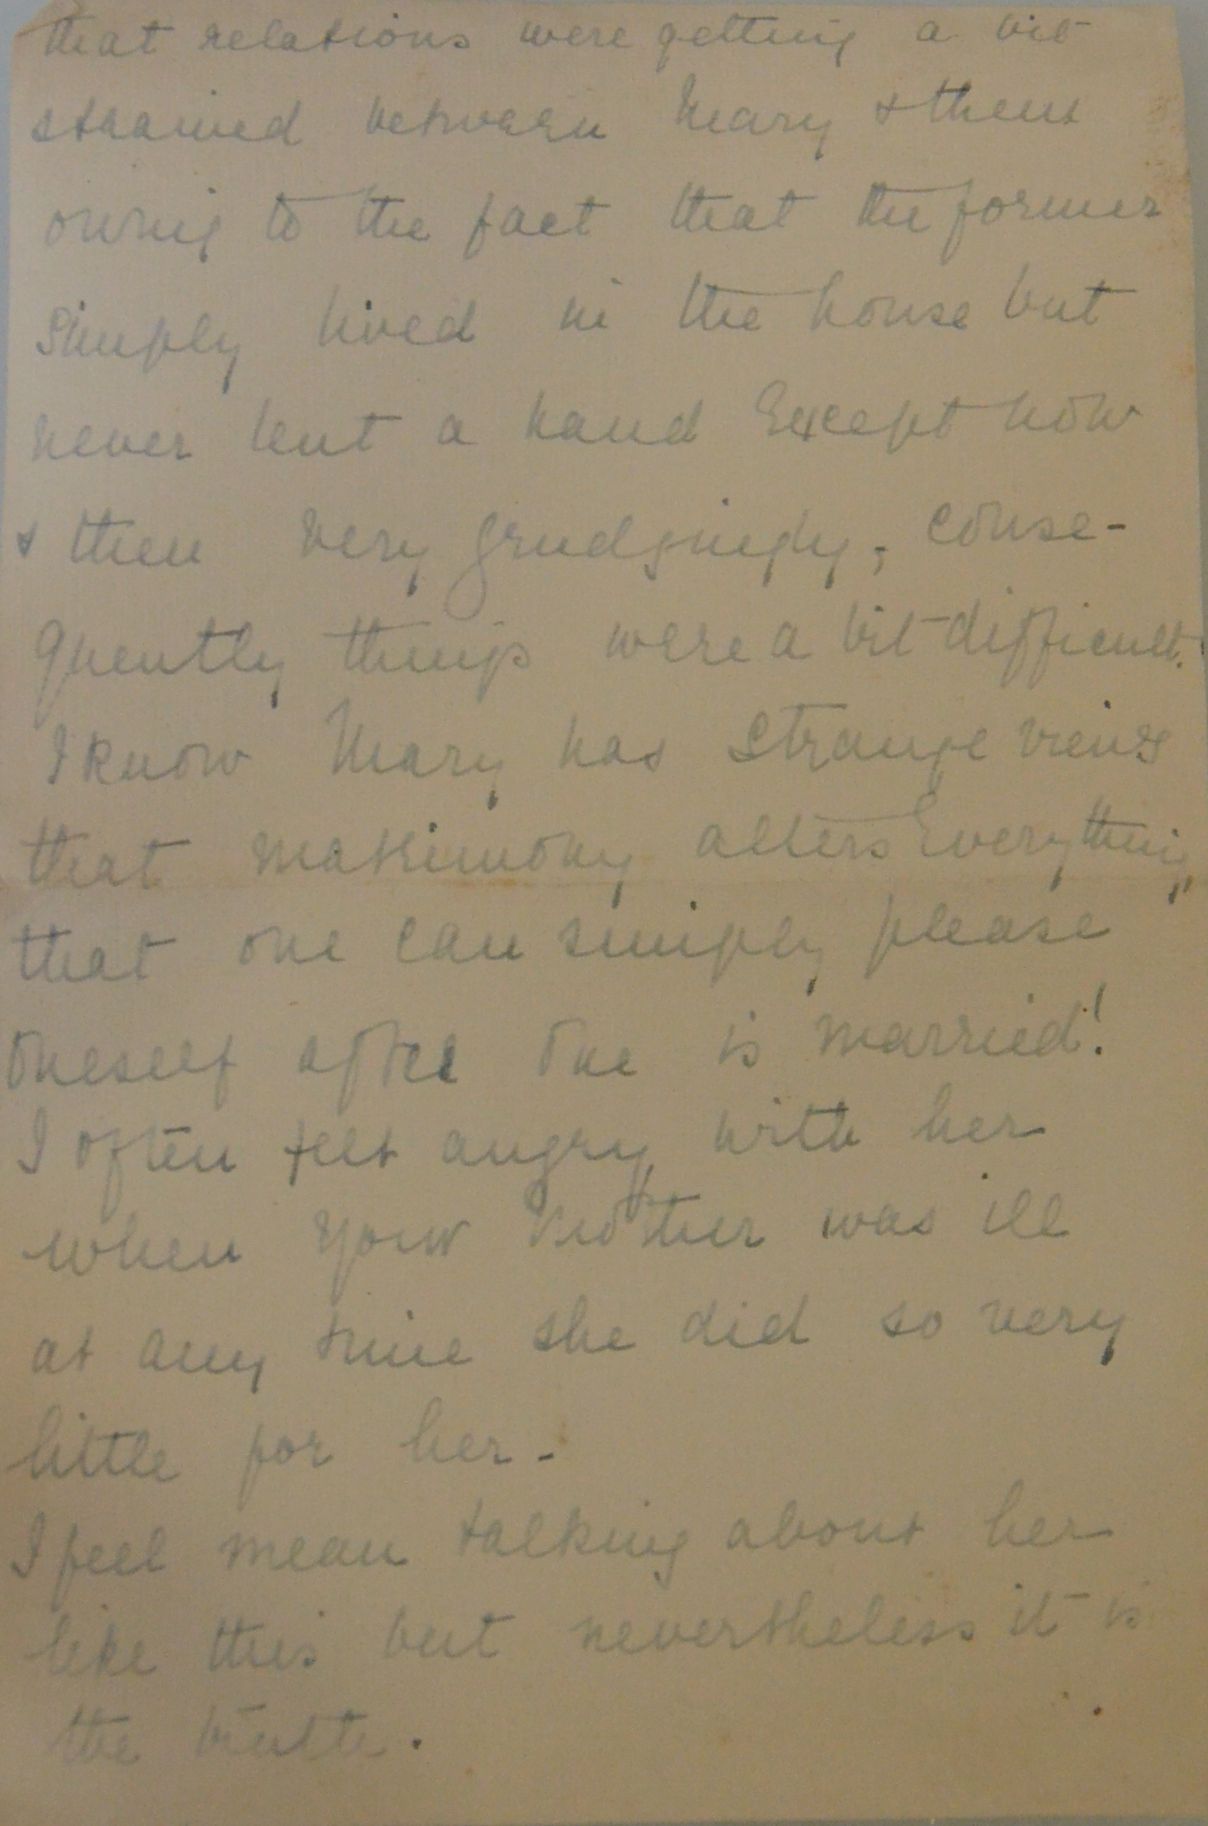 that relations were getting a bit
strained between Mary & them
owing to the fact that the former
simply lived in the house but
never lent a hand Except now
& then very grudgingly, conse-
quently things were a bit difficult.
I know Mary has strange views
that matrimony alters Everything,
that one can simply please
oneself after one is married!
I often felt angry with her
when your Mother was ill
at any time she did so very
little for her -
I feel mean talking about her
like this but nevertheless it is
the truth.